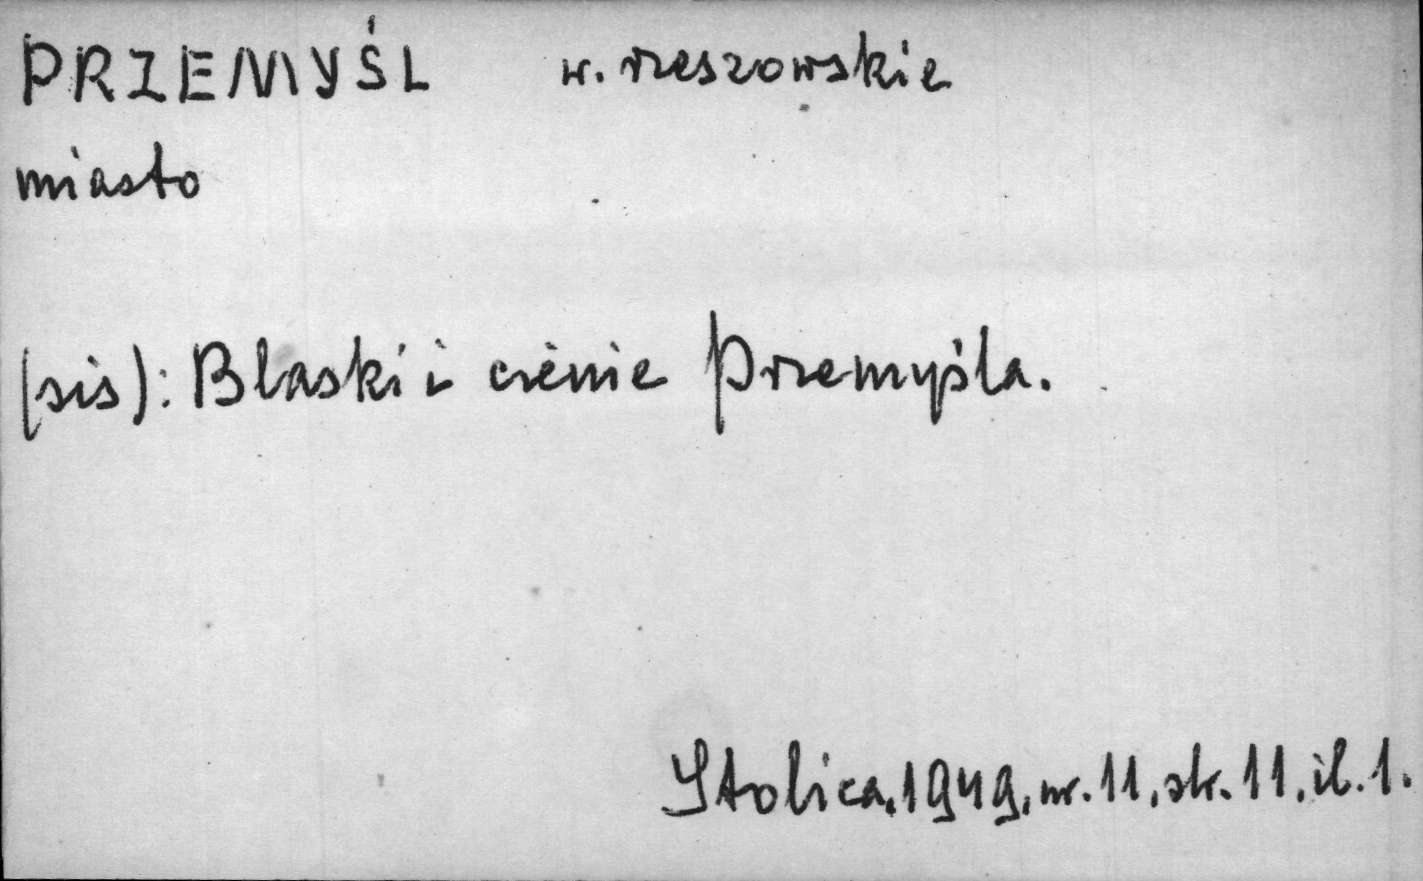 PRZEMYŚL w. rzeszowskie
miasto
(sis): Blaski i cienie Przemyśla.
Stolica, 1949, nr. 11, str. 11, il. 1.